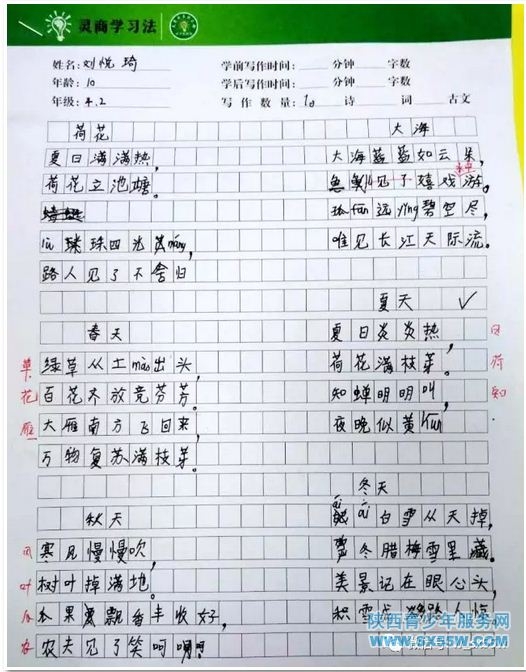 灵商学习法
姓名:刘悦琦
学前写作时间: 分钟 字数
年龄:10
学后写作时间: 分钟 字数
年级:4.2
写作数量:10 诗 词 古文
荷花
夏日满满热,
荷花立池塘。
珠四光
路人见了不舍归
春天
绿草从土mào出头,
百花齐放竞芬芳。
大雁南方飞回来,
万物复苏满枝芽。
草
花
雁
秋天
寒风慢慢吹,
树叶掉满地。
瓜果飘香丰收好,
农夫见了笑呵
风
叶
瓜
大海
大海蓝蓝如云朵,
鱼儿见了嬉戏游。
远yǐng碧空尽,
唯见长江天际流。
夏天
夏日炎炎热,
荷花满枝芽。
知蝉明明叫,
夜晚似黄
风
荷
知
冬天
白雪从天掉,
严冬腊梅雪里藏。
美景记在眼心头,
积雪
陕西青少年服务网
WWW.SX55W.COM